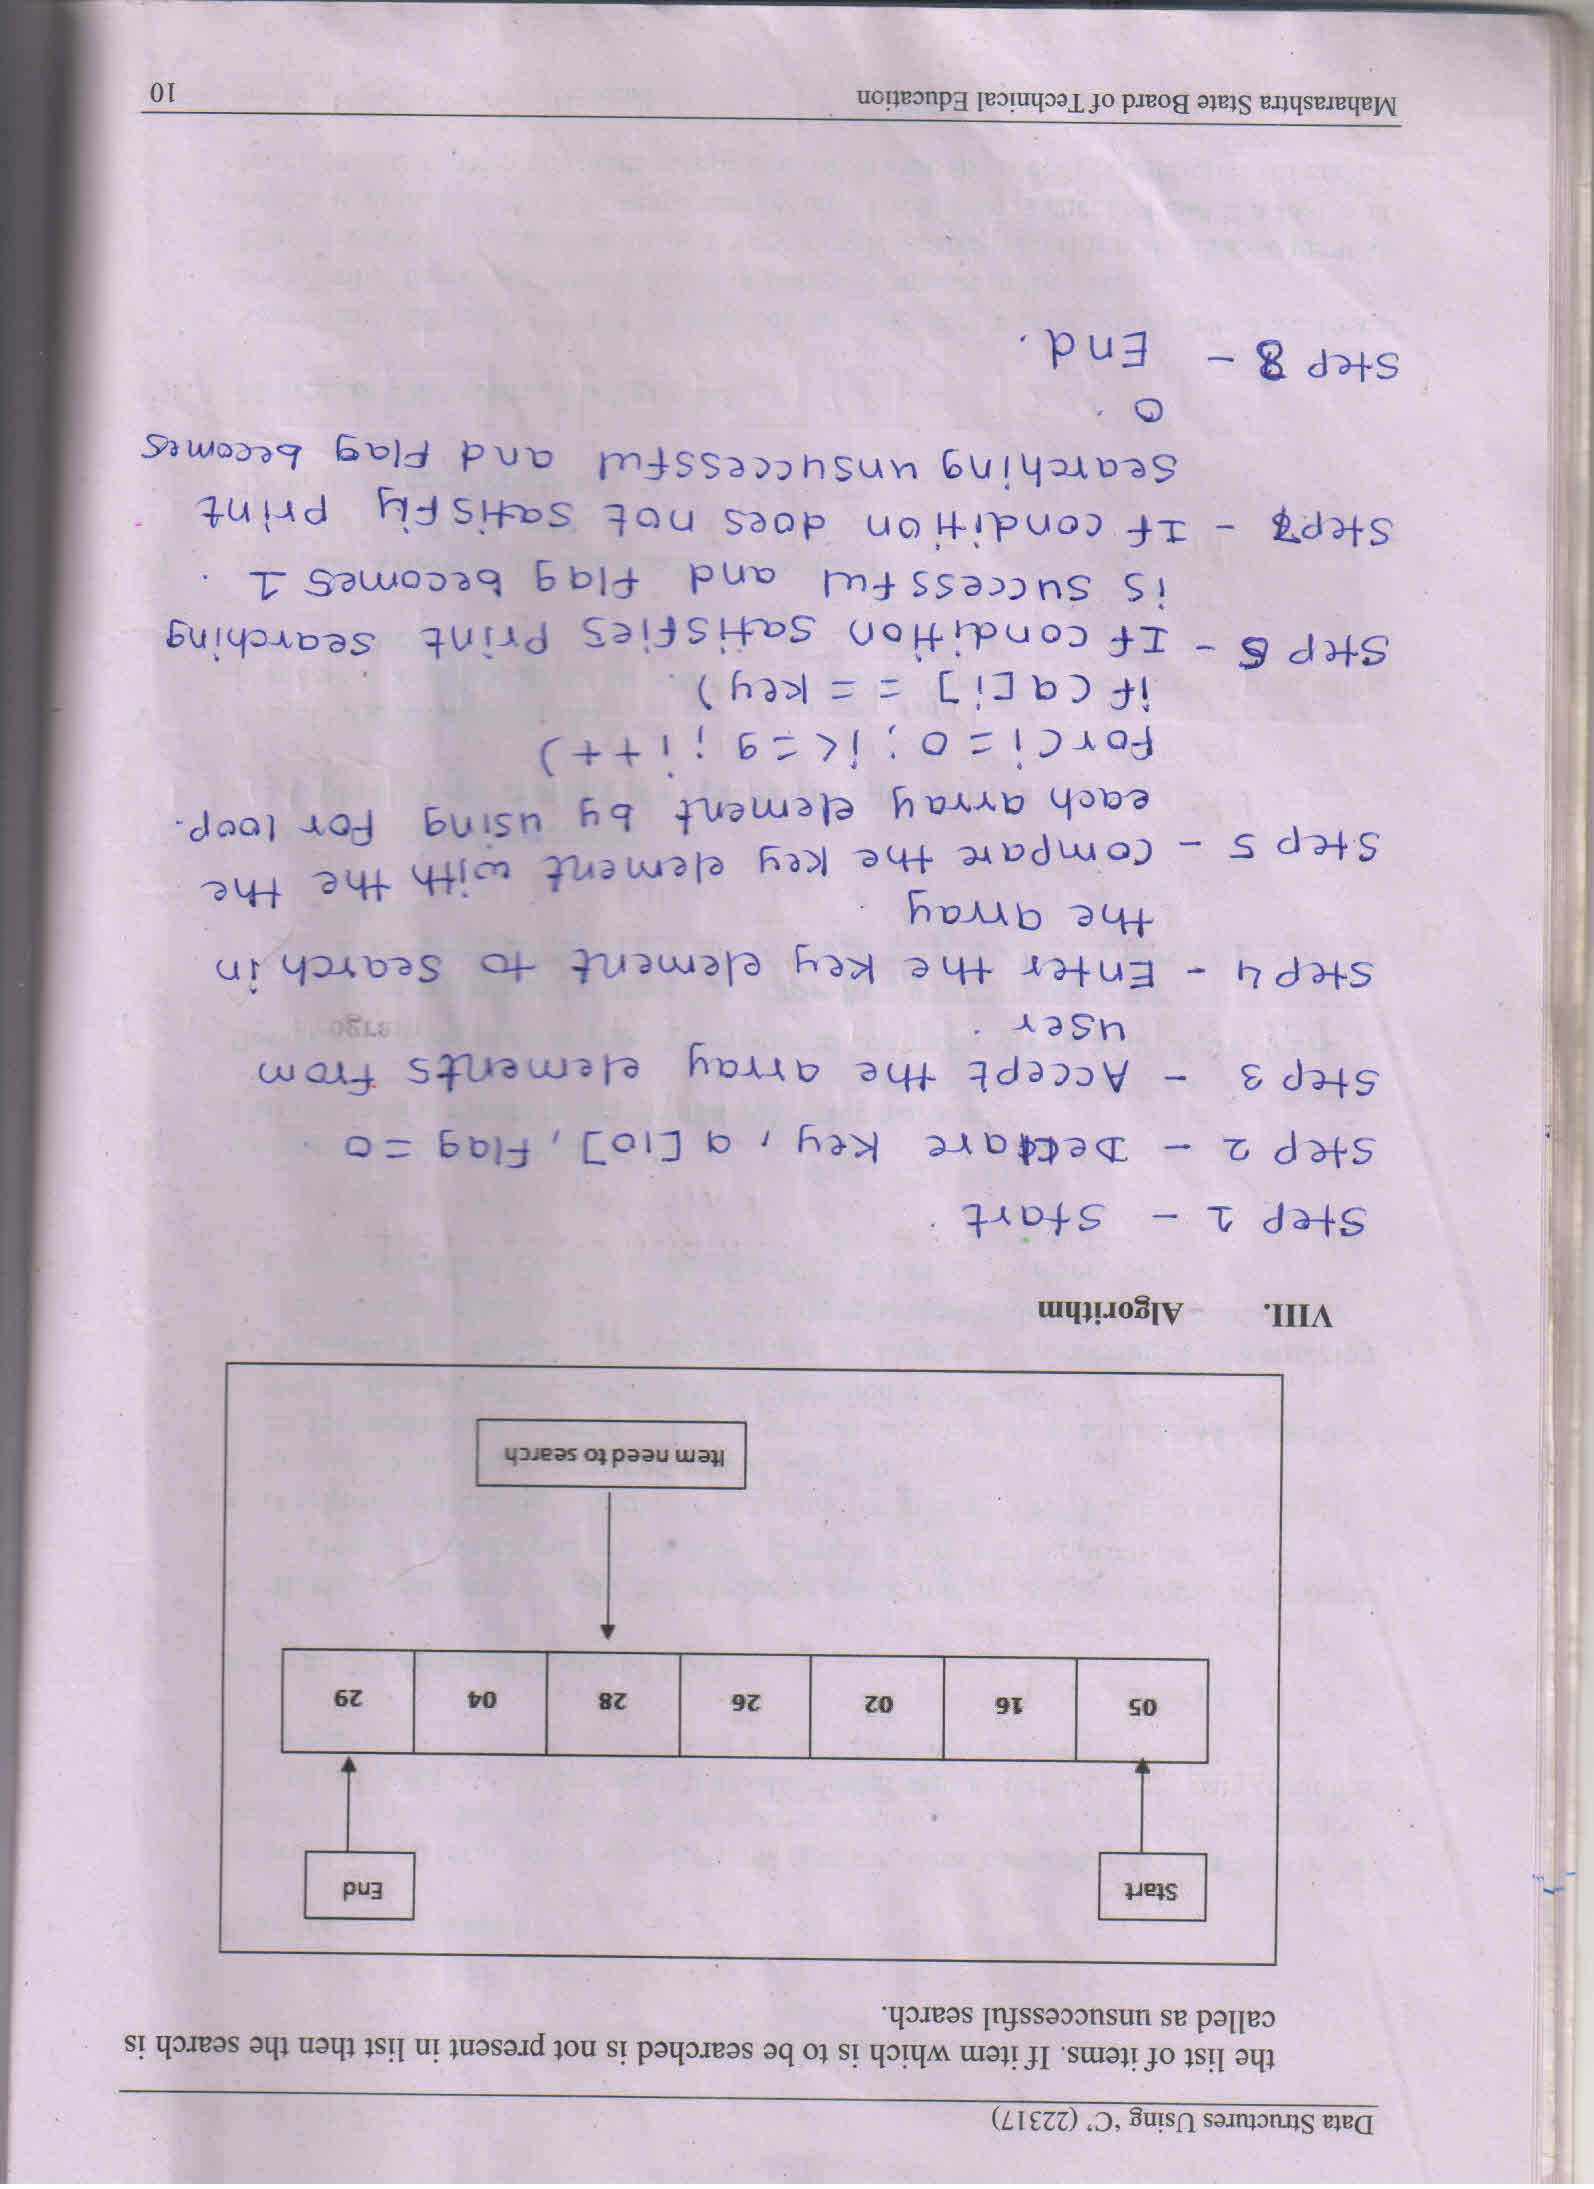 Data Structures Using ‘C’ (22317)
the list of items. If item which is to be searched is not present in list then the search is
called as unsuccessful search.
Start
End
05 16 02 26 28 04 29
Item need to search
VIII. Algorithm
Step 1 - Start.
Step 2 - Declare key, a[10], Flag = 0.
Step 3 - Accept the array elements from
user.
Step 4 - Enter the key element to search in
the array.
Step 5 - compare the key element with the the
each array element by using for loop.
for(i=0; i<=9; i++)
if(a[i] == key).
Step 6 - If condition satisfies Print searching
is successful and flag becomes 1.
Step 7 - If condition does not satisfiy print
searching unsuccessful and Flag becomes
0.
Step 8 - End.
Maharashtra State Board of Technical Education 10